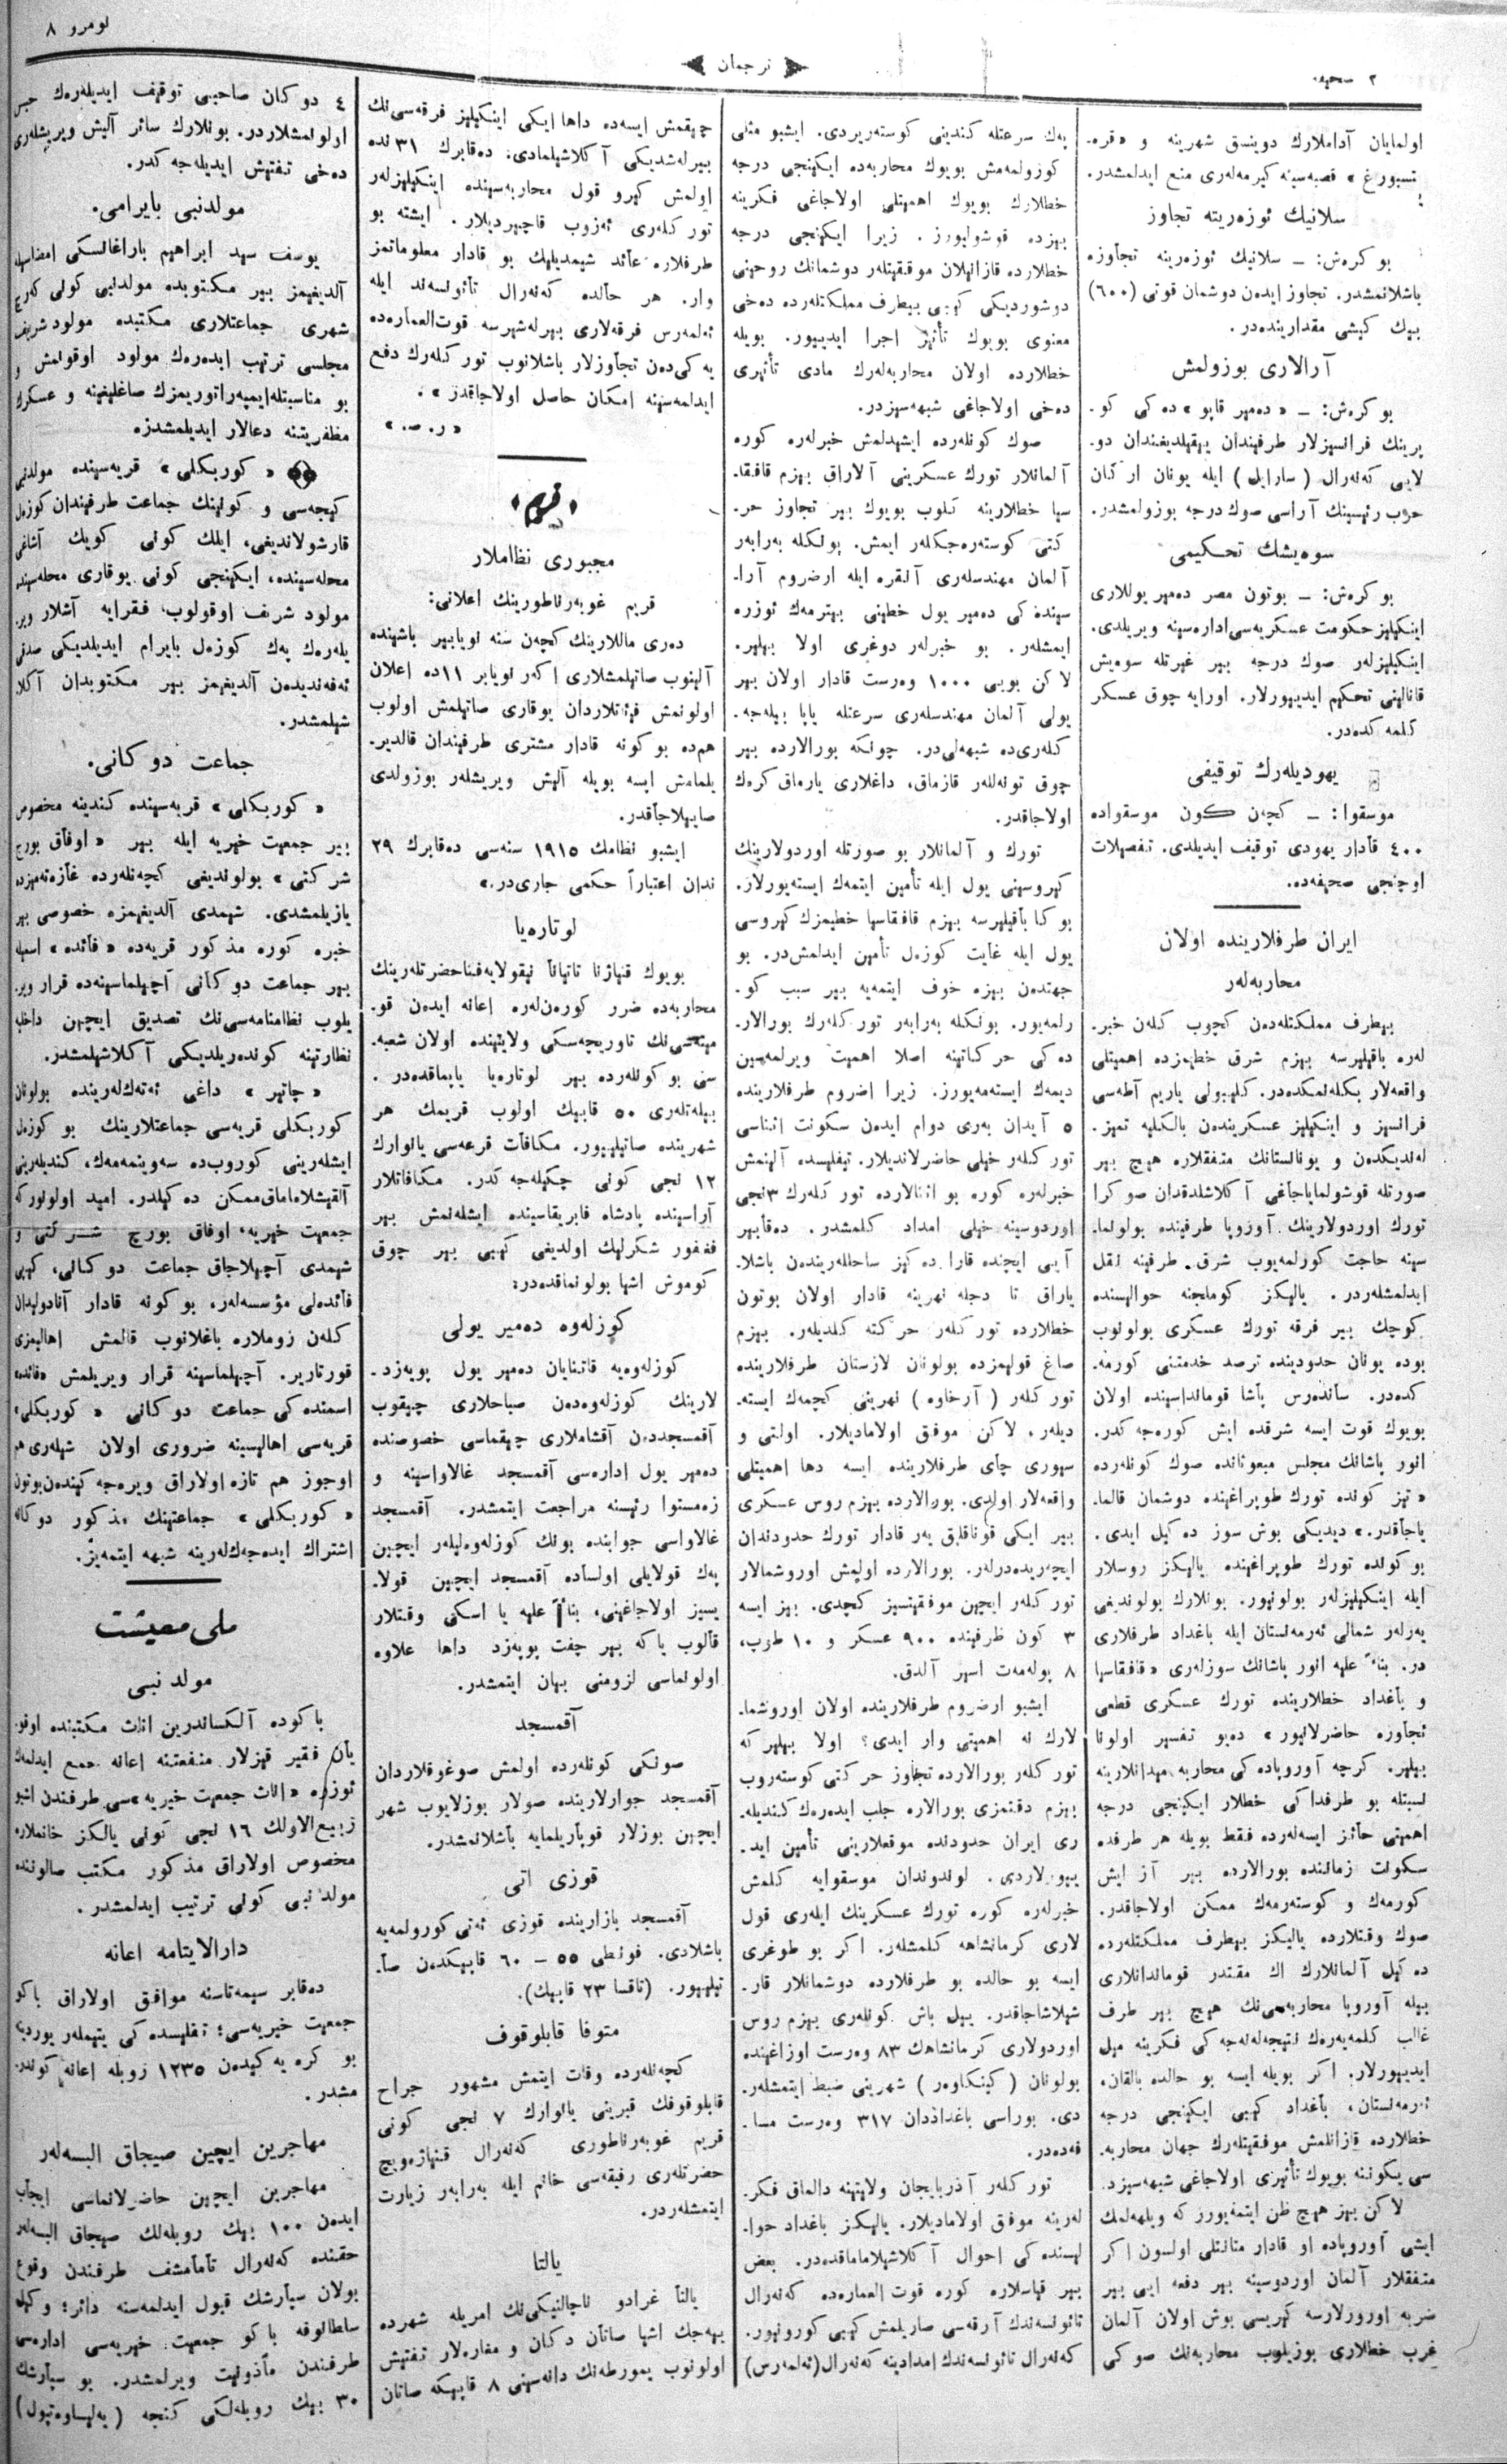 ۲ صحیفه
ترجمان
نومرو ۸
اولمایان آداملارك دوینسق شهرینه و «قره‌
نسبورغ» قصبه‌سینه کیرمه‌لری منع ایدلمشدر.
سلانیك ئوزه‌رینه تجاوز
بوکره‌ش: — سلانیك ئوزه‌رینه تجاوزه
باشلانمشدر. تجاوز ایدەن دوشمان قوتی (٦۰۰)
بیك کیشی مقدارینده‌در.
آرالاری بوزولمش
بوکره‌ش: — «ده‌میر قاپو» ده‌کی کو-
پرینك فرانسیزلار طرفیندان ییقیلدیغندان دو-
لایی که‌نه‌رال (سارایل) ایله یونان ارکان
حرب رئیسینك آراسی صوك درجه بوزولمشدر.
سوه‌یشك تحکیمی
بوکره‌ش: — بوتون مصر ده‌میر یوللاری
اینکیلیز حکومت عسکریه‌سی اداره‌سینه ویریلدی.
اینکیلیزلەر صوك درجه بیر غیرتله سوه‌یش
قانالینی تحکیم ایدییورلار. اورایه چوق عسکر
کلمه‌کده‌در.
یهودیلەرك توقیفی
موسقوا: — کچەن کون موسقواده
٤۰۰ قادار یهودی توقیف ایدیلدی. تفصیلات
اوچنجی صحیفه‌ده.
ایران طرفلارینده اولان
محاربه‌لەر
بیطرف مملکتلەدەن کچوب کلەن خبر-
لەره باقیلیرسه بیزم شرق خطیمزده اهمیتلی
واقعه‌لار بکله‌نمکده‌در. کلیبولی یاریم آطه‌سی
فرانسیز و اینکیلیز عسکریندەن بالکلیه تمیز-
له‌ندیکدەن و یونانستانك متفقلاره هیچ بیر
صورتله قوشولمایاجاغی آکلاشلدقدان صوکرا
تورك اوردولارینك آوروپا طرفینده بولونما-
سینه حاجت کورلمه‌یوب شرق طرفینه نقل
ایدلمشلەردر. یالیکز کوملجنه حوالیسنده
کوچك بیر فرقه تورك عسکری بولونوب
بوده یونان حدودینده ترصد خدمتنی کورمه-
کده‌در. ساندەرس پاشا قوماندا‌سینده اولان
بویوك قوت ایسه شرقده ایش کوره‌جه‌کدر.
انور پاشانك مجلس مبعوثانده صوك کونلەرده
«تیز کونده تورك طوپراغینده دوشمان قالما-
یاجاقدر.» دیدیکی بوش سوز ده‌کیل ایدی.
بوکونده تورك طوپراغینده یالیکز روسلار
ایله اینکیلیزلەر بولونیور. بونلارك بولوندیغی
یەرلەر شمالی ئه‌رمه‌نستان ایله بغداد طرفلاری
در. بناءً علیه انور پاشانك سوزلەری «قافقاسیا
و بغداد خطلارینده تورك عسکری قطعی
تجاوزه حاضرلانیور» ده‌یو تفسیر اولونا
بیلیر. کرچه آوروپاده‌کی محاربه میدانلارینه
نسبتله بو طرفداکی خطلار ایکینجی درجه
اهمیتی حائز ایسه‌لەرده فقط بویله هر طرفده
سکونت زماننده بورالارده بیر آز ایش
کورمه‌ك و کوسته‌رمه‌ك ممکن اولاجاقدر.
صوك وقتلارده یالیکز بیطرف مملکتلەرده
ده‌کیل آلمانلارك اك مقتدر قوماندانلاری
بیله آوروپا محاربه‌سی‌نك هیچ بیر طرف
غالب کلمه‌یه‌رك نتیجه‌له‌نه‌جه‌کی فکرینه میل
ایدییورلار. اکر بویله ایسه بو حالده بالقان،
ئه‌رمه‌نستان، بغداد کیبی ایکینجی درجه
خطلارده قازانلمش موفقیتلەرك جهان محاربه-
سی یکوننه بویوك تأثیری اولاجاغی شبهه‌سیزد.
لاکن بیز هیچ ظن ایتمه‌یورز که ویلهه‌لمك
ایشی آوروپاده او قادار متانتلی اولسون اکر
متفقلار آلمان اوردوسینه بیر دفعه ایی بیر
ضربه اورورلارسه کیریسی بوش اولان آلمان
غرب خطلاری بوزیلوب محاربه‌نك صوکی
پەك سرعتله کندینی کوسته‌ریردی. ایشبو مثلی
کوزولمه‌مش بویوك محاربه‌ده ایکینجی درجه
خطلارك بویوك اهمیتلی اولاجاغی فکرینه
بیزده قوشولیورز. زیرا ایکینجی درجه
خطلارده قازانیلان موفقیتلەر دوشمانك روحینی
دوشوردیکی کیبی بیطرف مملکتلەرده دخی
معنوی بویوك تأثیر اجرا ایدییور. بویله
خطلارده اولان محاربه‌لەرك مادی تأثیری
دخی اولاجاغی شبهه‌سیزدر.
صوك کونلەرده ایشیدلمش خبرلەره کوره
آلمانلار تورك عسکرینی آلاراق بیزم قافقا-
سیا خطلارینه کلوب بویوك بیر تجاوز حر-
کتی کوسته‌ره‌جکلەر ایمش. بونکله به‌رابەر
آلمان مهندسلەری آنقره ایله ارضروم آرا-
سینده‌کی ده‌میر یول خطینی بیترمه‌ك ئوزره
ایمشلەر. بو خبرلەر دوغری اولا بیلیر.
لاکن بویی ۱۰۰۰ وه‌رست قادار اولان بیر
یولی آلمان مهندسلەری سرعتله یاپا بیله‌جه-
کلەری‌ده شبهه‌لی‌در. چونکه بورالارده بیر
چوق تونه‌للەر قازماق، داغلاری یارماق کرەك
اولاجاقدر.
تورك و آلمانلار بو صورتله اوردولارینك
کیروسینی یول ایله تأمین ایتمه‌ك ایسته‌یورلار.
بوکا باقیلیرسه بیزم قافقاسیا خطیمزك کیروسی
یول ایله غایت کوزەل تأمین ایدلمش‌در. بو
جهتدەن بیزه خوف ایتمه‌یه بیر سبب کو-
رلمه‌یور. بونکله به‌رابەر تورکلەرك بورالار-
ده‌کی حرکاتینه اصلا اهمیت ویرلمه‌سین
دیمه‌ك ایسته‌مه‌یورز. زیرا اضروم طرفلارینده
٥ آیدان به‌ری دوام ایدەن سکونت اثناسی
تورکلەر خیلی حاضرلاندیلار. تیفلیسده آلینمش
خبرلەره کوره بو اثنالارده تورکلەرك ۳نجی
اوردوسینه خیلی امداد کلمشدر. ده‌قابیر
آیی ایچنده قارا ده‌کیز ساحللەریندەن باشلا-
یاراق تا دجله نهرینه قادار اولان بوتون
خطلارده تورکلەر حرکته کلدیلەر. بیزم
صاغ قولیمزده بولونان لازستان طرفلارینده
تورکلەر (آرخاوه) نهرینی کچمه‌ك ایسته-
دیلەر، لاکن موفق اولامادیلار. اولتی و
سیوری چای طرفلارینده ایسه دها اهمیتلی
واقعه‌لار اولدی. بورالارده بیزم روس عسکری
بیر ایکی قوناقلق یەر قادار تورك حدودندان
ایچه‌ریده‌درلەر. بورالارده اولمش اوروشمالار
تورکلەر ایچین موفقیتسیز کچدی. بیز ایسه
۳ کون ظرفینده ۹۰۰ عسکر و ۱۰ طوپ،
۸ پوله‌مەت اسیر آلدق.
ایشبو ارضروم طرفلارینده اولان اوروشما-
لارك نه اهمیتی وار ایدی؟ اولا بیلیر که
تورکلەر بورالارده تجاوز حرکتی کوسته‌روب
بیزم دقتمزی بورالاره جلب ایده‌رەك کندیله-
ری ایران حدودنده موقعلارینی تأمین اید-
ییورلاردی. لوندوندان موسقوایه کلمش
خبرلەره کوره تورك عسکرینك ایلەری قول
لاری کرمانشاهه کلمشلەر. اکر بو طوغری
ایسه بو حالده بو طرفلارده دوشمانلار قار-
شیلاشاجاقدر. ییل باش کونلەری بیزم روس
اوردولاری کرمانشاهك ۸۳ وه‌رست اوزاغینده
بولونان (کینکاوەر) شهرینی ضبط ایتمشلەر-
دی. بوراسی بغداددان ۳۱۷ وه‌رست مسا-
فه‌ده‌در.
تورکلەر آذربایجان ولایتینه دالماق فکر-
لەرینه موفق اولامادیلار. یالیکز بغداد حوا-
لیسنده‌کی احوال آکلاشیلاماماقده‌در. بعض
بیر قیاسلاره کوره قوت العماره‌ده که‌نه‌رال
تائونسه‌ندك آرقه‌سی صاریلمش کیبی کورونیور.
که‌نه‌رال تائونسه‌ندك امدادینه که‌نه‌رال (ئه‌لمه‌رس)
چیقمش ایسه‌ده داها ایکی اینکیلیز فرقه‌سی‌نك
بیرله‌شدیکی آکلاشیلمادی. ده‌قابرك ۳۱نده
اولمش کیرو قول محاربه‌سینده اینکیلیزلەر
تورکلەری ئه‌زوب قاچیردیلار. ایشته بو
طرفلاره عائد شیمدیلیك بو قادار معلوماتمز
وار. هر حالده که‌نه‌رال تائونسه‌ند ایله
ئه‌لمه‌رس فرقه‌لاری بیرله‌شیرسه قوت‌العماره‌ده
یه‌کی‌دەن تجاوزلار باشلانوب تورکلەرك دفع
ایدلمه‌سینه امکان حاصل اولاجاقدر».
«ر. ص.»
قریم
مجبوری نظاملار
قریم غوبه‌رناطورینك اعلانی:
ده‌ری ماللارینك کچەن سنه نویابیر باشینده
آلینوب صاتیلمشلاری اکر نویابر ۱۱ده اعلان
اولونمش فیئاتلاردان یوقاری صاتیلمش اولوب
هم‌ده بوکونه قادار مشتری طرفیندان قالدیر-
یلمامش ایسه بویله آلیش ویریشلەر بوزولدی
صاییلاجاقدر.
ایشبو نظامك ۱۹۱٥ سنه‌سی ده‌قابرك ۲۹
ندان اعتباراً حکمی جاری‌در.»
لوتاره‌یا
بویوك قنیاژنا تاتیانا نیقولایه‌فنا حضرتلەرینك
محاربه‌ده ضرر کورەن‌لەره اعانه ایدەن قو-
میته‌سی‌نك تاوریچه‌سکی ولایتینده اولان شعبه-
سی بو کونلەرده بیر لوتاره‌یا یاپماقده‌در.
بیله‌تلەری ٥۰ قاپیك اولوب قریمك هر
شهرینده صاتیلییور. مکافات قرعه‌سی یانوارك
۱۲ نجی کونی چکیله‌جه‌کدر. مکافاتلار
آراسینده پادشاه فابریقاسینده ایشله‌نمش بیر
فغفور شکرلیك اولدیغی کیبی بیر چوق
کوموش اشیا بولونماقده‌در.
کوزله‌وه ده‌میر یولی
کوزله‌وه‌یه قاتنایان ده‌میر یول پویه‌زد-
لارینك کوزله‌وه‌دەن صباحلاری چیقوب
آقمسجددەن آقشاملاری چیقماسی خصوصنده
ده‌میر یول اداره‌سی آقمسجد غالاواسینه و
زه‌مستوا رئیسنه مراجعت ایتمشدر. آقمسجد
غالاواسی جوابنده بونك کوزله‌وه‌لیلەر ایچین
پەك قولایلی اولساده آقمسجد ایچین قولا-
یسیز اولاجاغینی، بناءً علیه یا اسکی وقتلار
قالوب یاکه بیر چفت پویه‌زد داها علاوه
اولونماسی لزومنی بیان ایتمشدر.
آقمسجد
صونکی کونلەرده اولمش صوغوقلاردان
آقمسجد جوارلارینده صولار بوزلایوب شهر
ایچین بوزلار قوپاریلمایه باشلانمشدر.
قوزی اتی
آقمسجد بازارینده قوزی ئه‌تی کورولمه‌یه
باشلادی. فونطی ٥٥ — ٦۰ قاپیکدەن صا-
تیلییور. (تاقسا ۲۳ قاپیك).
متوفا قابلوقوف
کچه‌نلەرده وفات ایتمش مشهور جراح
قابلوقوفك قبرینی یانوارك ۷ نجی کونی
قریم غوبه‌رناطوری که‌نه‌رال قنیاژه‌ویچ
حضرتلەری رفیقه‌سی خانم ایله به‌رابەر زیارت
ایتمشلەردر.
یالتا
یالتا غرادو ناچالنیکی‌نك امریله شهرده
ییه‌جك اشیا صاتان دکان و مغازه‌لار تفتیش
اولونوب یمورطه‌نك دانه‌سینی ۸ قاپیکه صاتان
٤ دوکان صاحبی توقیف ایدیله‌رەك حبس
اولونمشلاردر. بونلارك سائر آلیش ویریشلەری
دخی تفتیش ایدیله‌جه‌کدر.
مولدنبی بایرامی.
یوسف سید ابراهیم باراغانسکی امضاسیله
آلدیغیمز بیر مکتوبده مولدنبی کونی که‌رچ
شهری جماعتلاری مکتبده مولود شریف
مجلسی ترتیب ایده‌رەك مولود اوقونمش و
بو مناسبتله ایمپه‌راتوریمزك صاغلیغینه و عسکرك
مظفریتنه دعالار ایدیلمشدر.
«کوربکلی» قریه‌سینده مولدنبی
کیجه‌سی و کونینك جماعت طرفیندان کوزەل
قارشولاندیغی، ایلك کونی کویك آشاغی
محله‌سینده، ایکینجی کونی یوقاری محله‌سینده
مولود شریف اوقولوب، فقرایه آشلار ویر-
یله‌رەك پەك کوزەل بایرام ایدیلدیکی صدقی
ئه‌فه‌ندیدەن آلدیغیمز بیر مکتوبدان آکلا
شیلمشدر.
جماعت دوکانی.
«کوربکلی» قریه‌سینده کندینه مخصوص
بیر جمعیت خیریه ایله بیر «اوفاق بورچ
شرکتی» بولوندیغی کچه‌نلەرده غازه‌ته‌میزده
یازیلمشدی. شیمدی آلدیغیمزه خصوصی بیر
خبره کوره مذکور قریه‌ده «فائده» اسمیله
بیر جماعت دوکانی آچیلماسینه‌ده قرار ویر-
یلوب نظامنامه‌سی‌نك تصدیق ایچین داخلیه
نظارتینه کونده‌ریلدیکی آکلاشیلمشدر.
«چاتیر» داغی ئه‌ته‌کلەرینده بولونان
کوربکلی قریه‌سی جماعتلارینك بو کوزەل
ایشلەرینی کوروب‌ده سه‌وینمه‌مه‌ك، کندیلەرینی
آلقیشلاماماق ممکن ده‌کیلدر. امید اولونور که
جمعیت خیریه، اوفاق بورچ شرکتی و
شیمدی آچیلاجاق جماعت دوکانی، کیبی
فائده‌لی مؤسسه‌لەر، بوکونه قادار آنادولیدان
کلەن زوملاره باغلانوب قالمش اهالیمزی
قورتاریر. آچیلماسینه قرار ویریلمش «فائده»
اسمنده‌کی جماعت دوکانی «کوربکلی»
قریه‌سی اهالیسینه ضروری اولان شیلەری هم
اوجوز هم تازه اولاراق ویره‌جه‌کیندەن بوتون
«کوربکلی» جماعتینك مذکور دوکانه
اشتراك ایده‌جه‌ك‌لەرینه شبهه ایتمه‌یز.
ملی معیشت
مولد نبی
باکوده آلکساندرین اناث مکتبنده اوقو-
یان فقیر قیزلار منفعتنه اعانه جمع ایدلمه‌ك
ئوزره «اناث جمعیت خیریه»سی طرفندن اشبو
ربیع‌الاولك ۱٦ نجی کونی یالکز خانملاره
مخصوص اولاراق مذکور مکتب صالوننده
مولد نبی کونی ترتیب ایدلمشدر.
دارالایتامه اعانه
ده‌قابر سیمه‌تاسنه موافق اولاراق باکو
جمعیت خیریه‌سی؛ تفلیسده‌کی یتیملەر یوردینه
بو کره یه‌کیدەن ۱۲۳٥ روبله اعانه کوندر-
مشدر.
مهاجرین ایچین صیجاق البسه‌لەر
مهاجرین ایچین حاضرلانماسی ایجاب
ایدەن ۱۰۰ بیك روبله‌لك صیجاق البسه‌لەر
حقنده که‌نه‌رال تامامشف طرفندن وقوع
بولان سپارشك قبول ایدلمه‌سنه دائر؛ وکیل
سلطانوفه باکو جمعیت خیریه‌سی اداره‌سی
طرفندن مأذونیت ویرلمشدر. بو سپارشك
۳۰ بیك روبله‌لکی کنجه (یه‌لیساوه‌تپول)